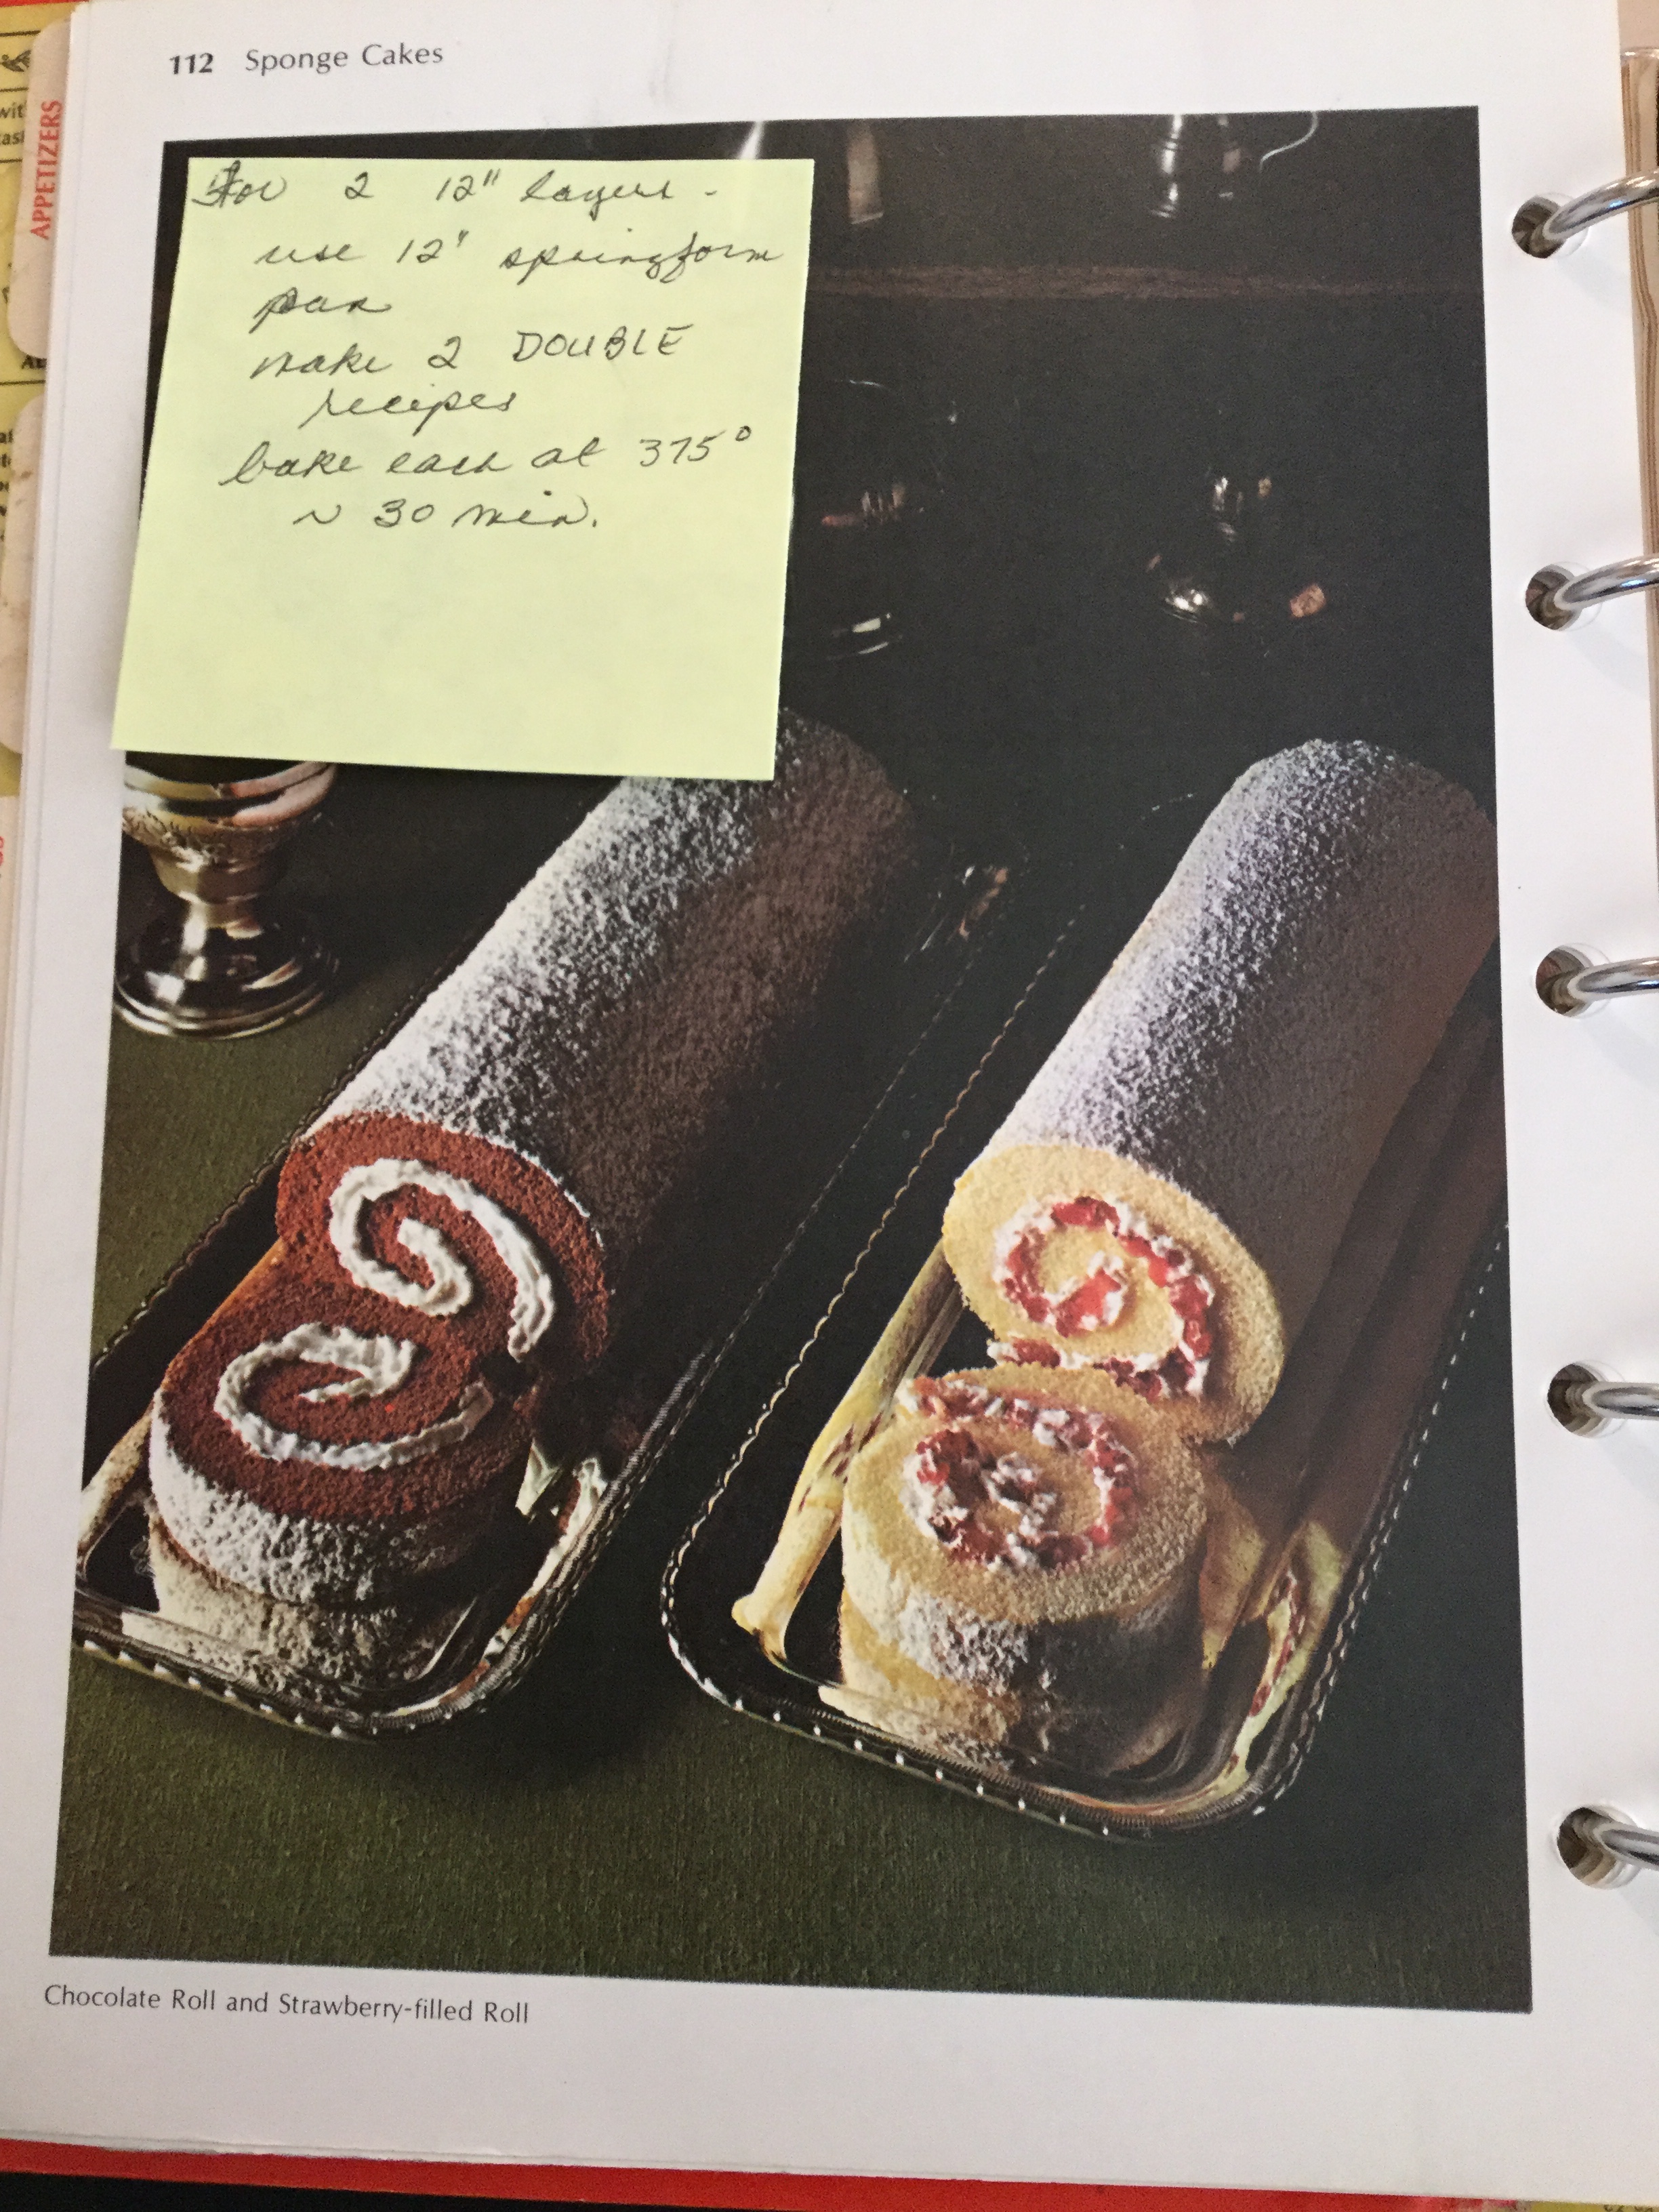 112 Sponge Cakes
APPETIZERS
For 2 12" layers -
use 12" springform
pan
make 2 DOUBLE
recipes
bake each at 375°
~ 30 min.
Chocolate Roll and Strawberry-filled Roll